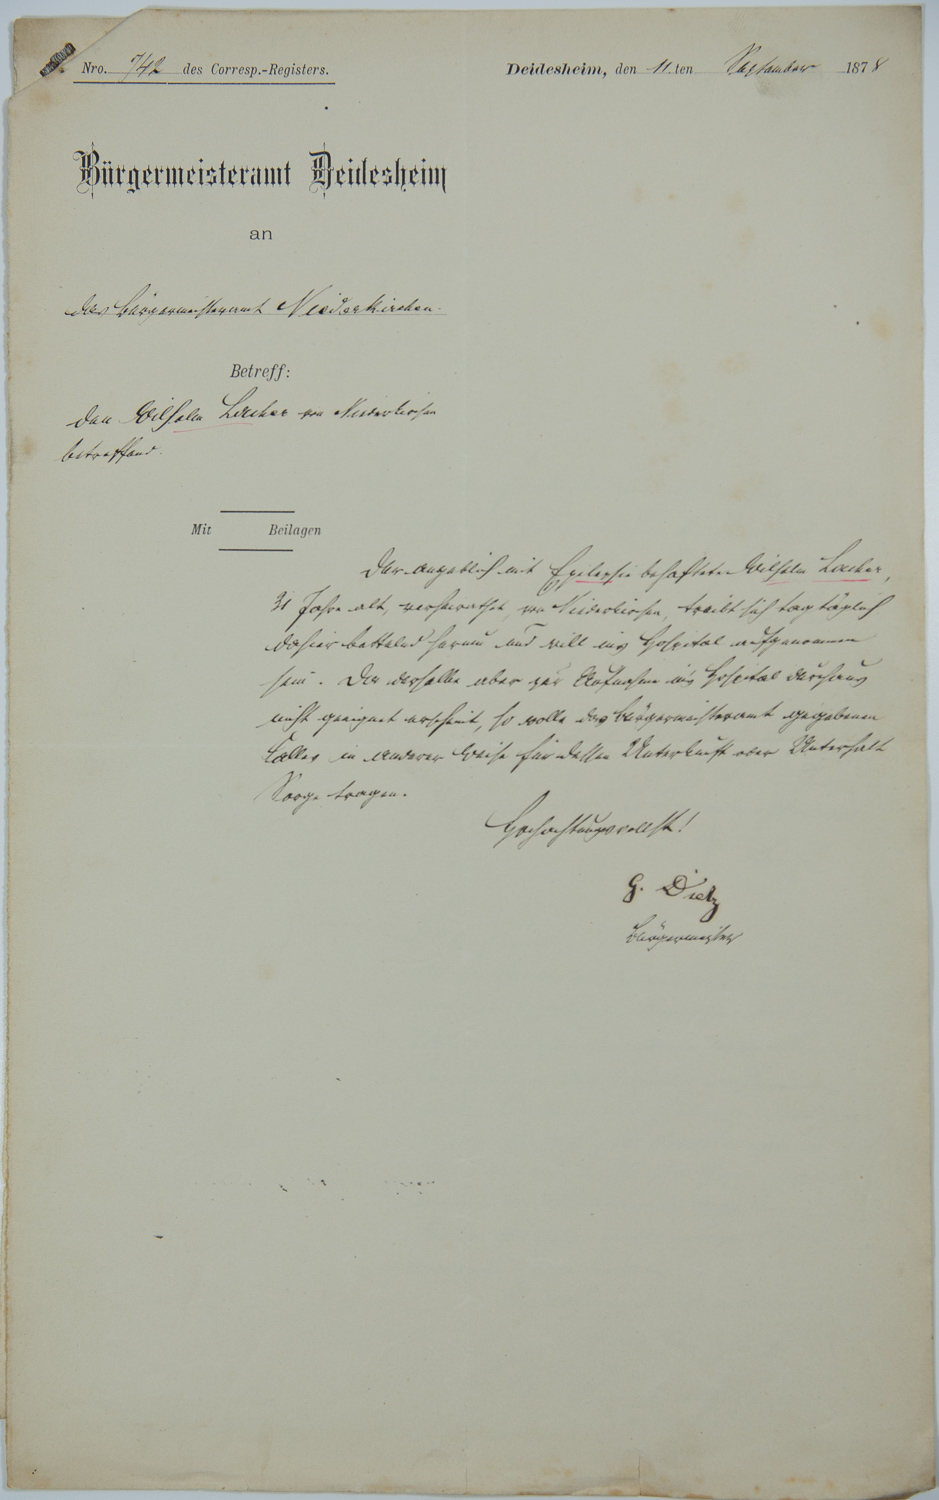 Nro. 742 des Corresp.-Registers.
Deidesheim, den 11.ten September 1878
Bürgermeisteramt Deidesheim
an
das Bürgermeisteramt Niederkirchen.
Betreff:
den Wilhelm Lacher von Niederkirchen
betreffend.
Mit Beilagen
Der angeblich mit Epilepsie behaftete Wilhelm Lacher,
31 Jahre alt, verheirathet, von Niederkirchen, treibt sich tagtäglich
dahier bettelnd herum und will ins Hospital aufgenommen
sein. Da derselbe aber zur Aufnahme ins Hospital durchaus
nicht geeignet erscheint, so wolle das Bürgermeisteramt gegebenen
Falles in anderer Weise für dessen Unterkunft oder Unterhalt
Sorge tragen.
Hochachtungsvollst!
G. Dietz
Bürgermeister